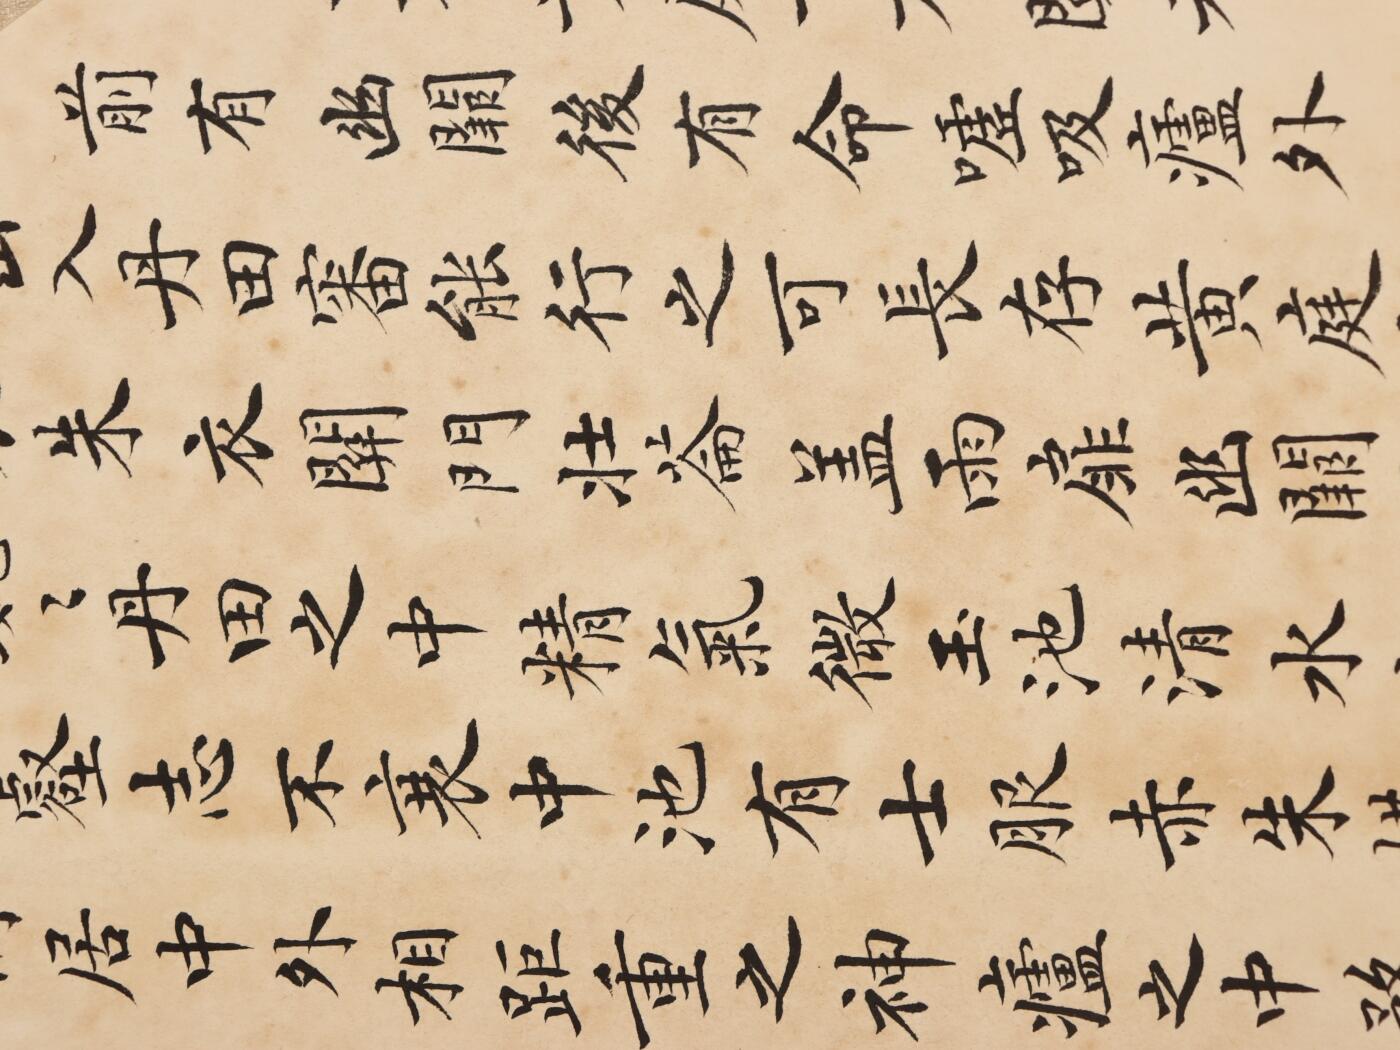 前有幽闕後有命噓吸廬外
入丹田審能行之可長存黃庭
朱衣關門壯蓋兩扉幽闕
丹田之中精氣微玉池清水
堅志不衰中池有士服赤朱
居中外相距重之神廬之中